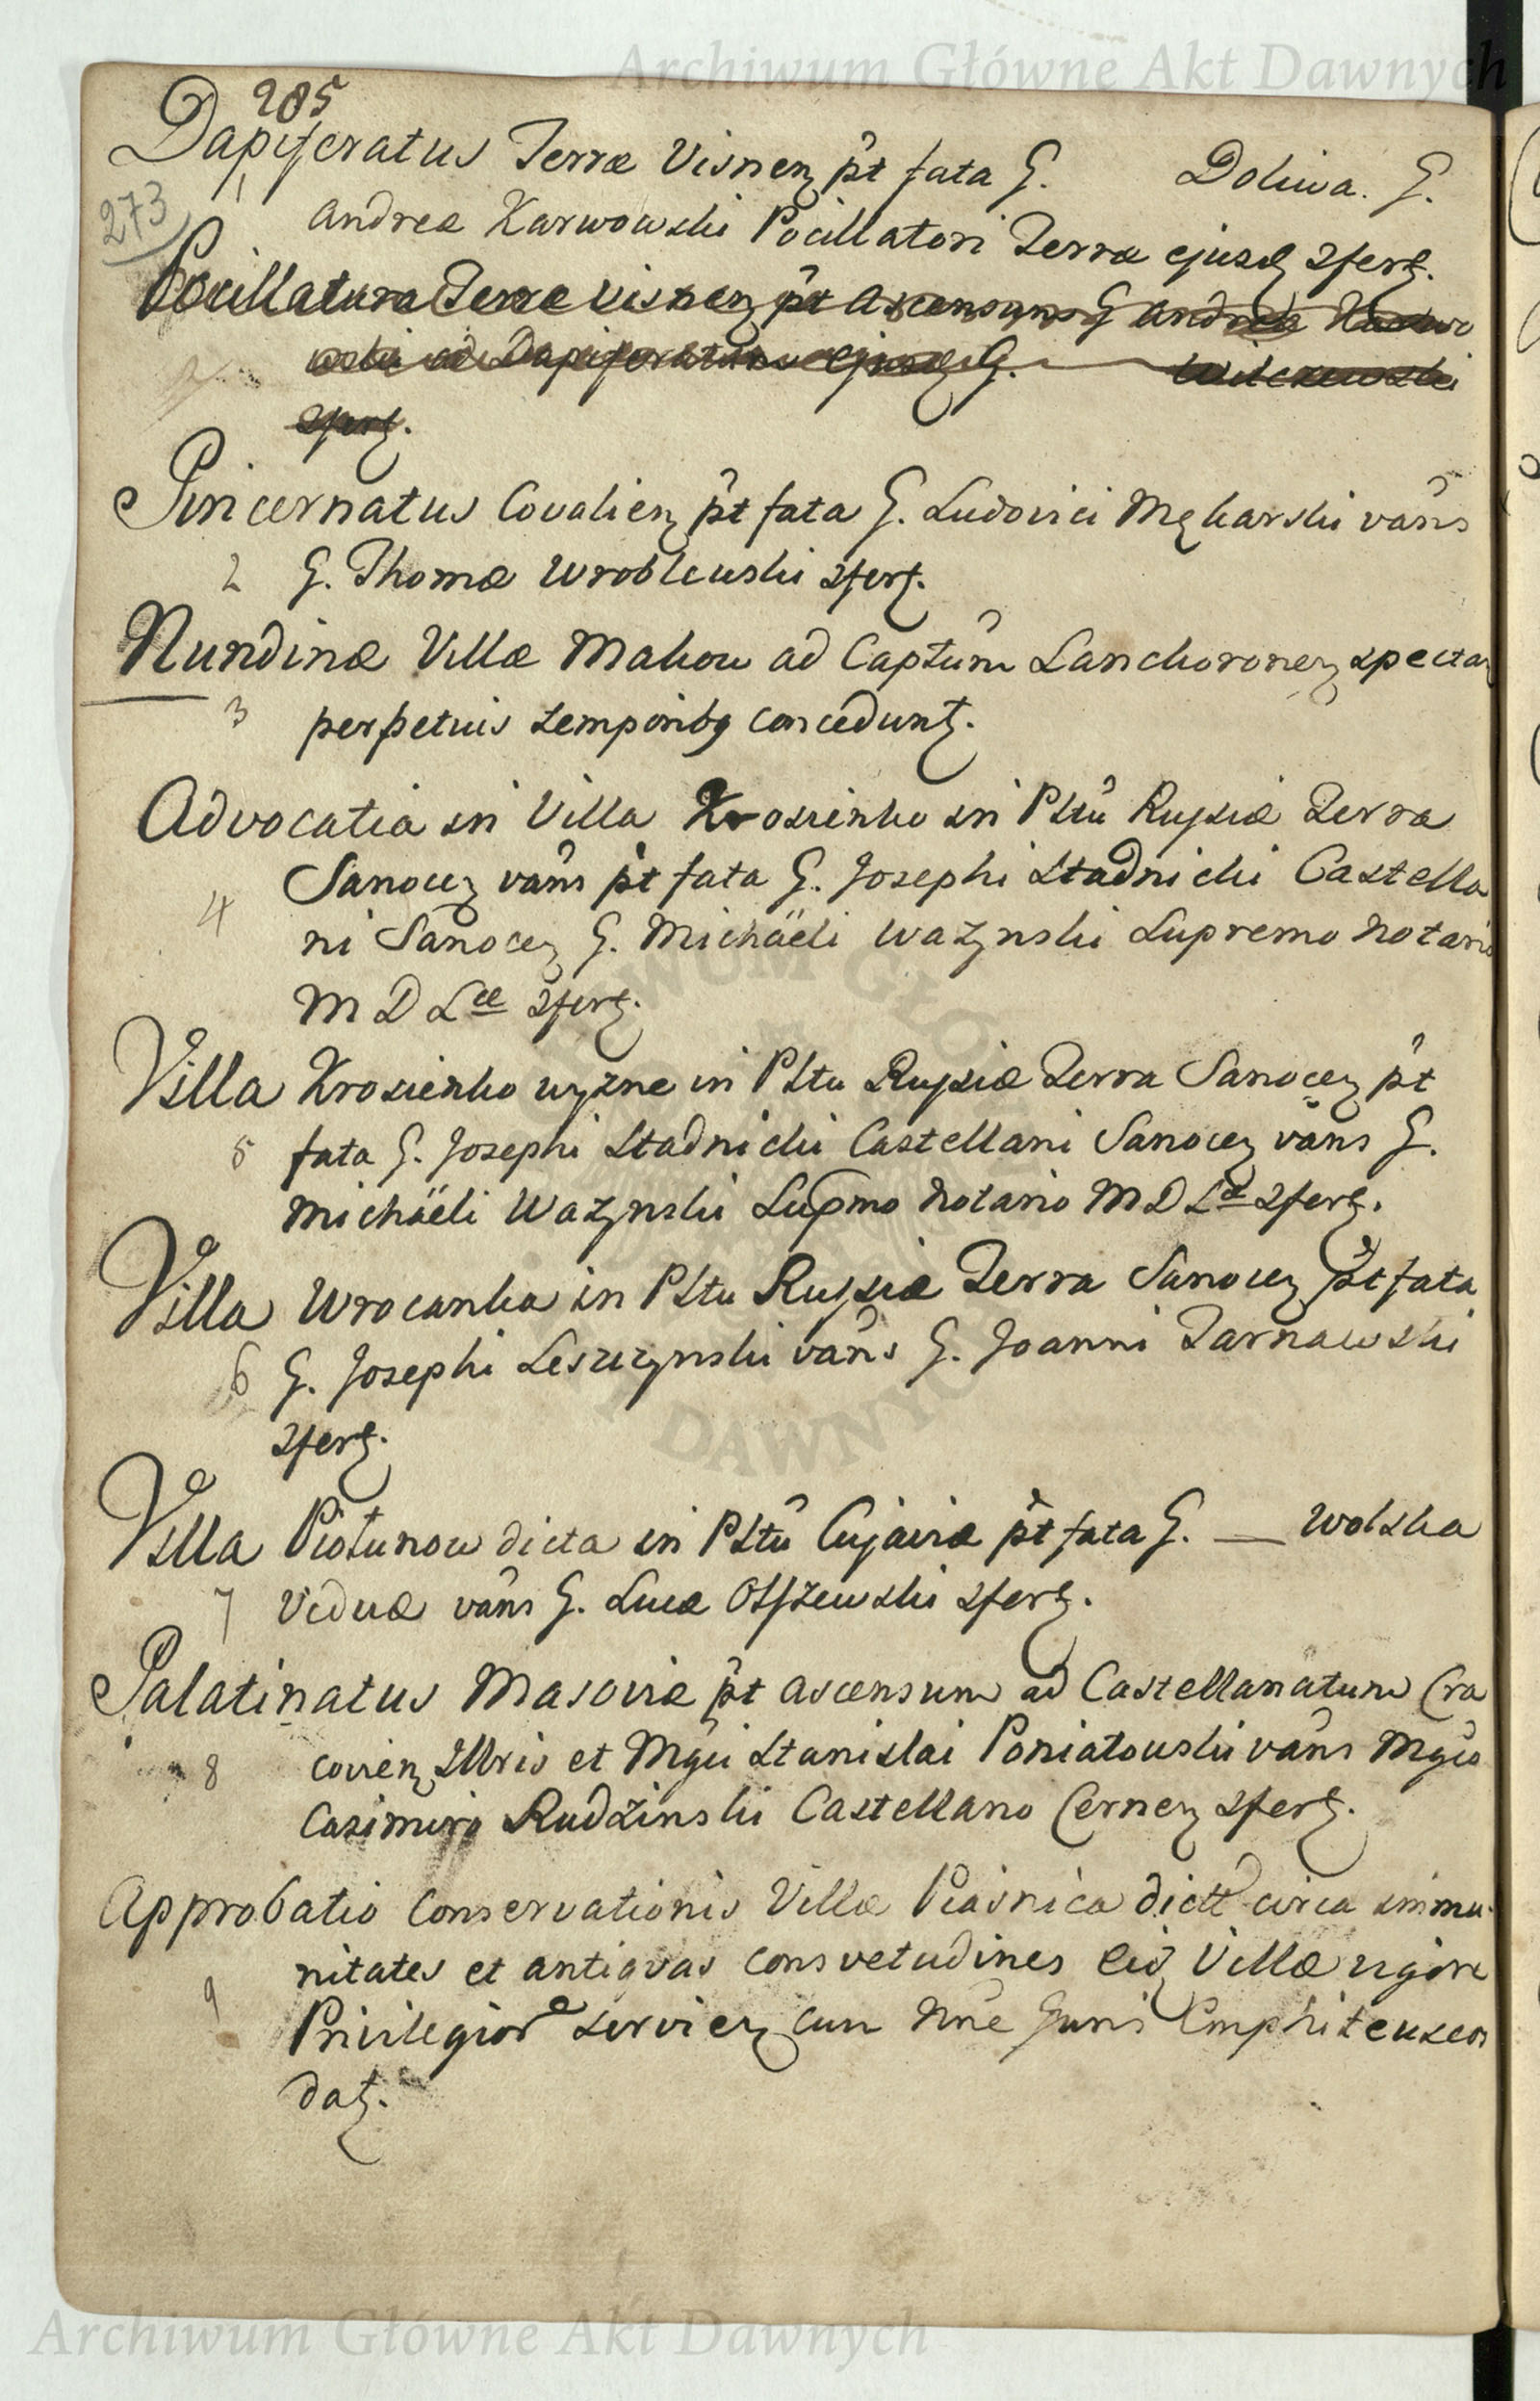 Archiwum Główne Akt Dawnych
285
Dapiferatus Terræ Visnen pt fata G. Doliwa. G.
273
1 Andreæ Karwowski Pocillatori Terræ ejusd sfert.
Pocillatura Terræ Visnen pt ascensum G Andreæ Karwo
wski ad Dapiferatum ejusd G. — Wilczewski
sfert.
Pincernatus Covalien pt fata G. Ludovici Mękarski vans
2 G. Thomæ Wroblewski sfert.
Nundinæ Villæ Makow ad Captum Lanckoronen spectan
3 perpetuis temporibq concedunt.
Advocatia in Villa Kroszienko in Pltu Russiæ Terra
Sanocen vans pt fata G. Josephi Stadnicki Castella
4 ni Sanocen G. Michäeli Wazynski Supremo Notario
M D Læ sfert.
Villa Krosienko wyzne in Pltu Russiæ Terra Sanocen pt
5 fata G. Josephi Stadnicki Castellani Sanocen vans G.
Michäeli Wazynski Supmo Notario M D Læ sfert.
Villa Wrocanka in Pltu Russiæ Terra Sanocen pt fata
6 G. Josephi Leszczynski vans G. Joanni Tarnawski
sfert.
Villa Piołunow dicta in Pltu Cujaviæ pt fata G. — Wolska
7 Viduæ vans G. Lucæ Olszewski sfert.
Palatinatus Masoviæ pt ascensum ad Castellanatum Cra
8 covien Illris et Mgci Stanislai Poniatowski vans Mgco
Casimiro Rudzinski Castellano Cernen sfert.
Approbatio Conservationis Villæ Piasnica dictæ circa immu
nitates et antiqvas consvetudines eid Villæ vigore
9 Privilegior servien cum Nne Juris Emphiteuseos
dat.
Archiwum Główne Akt Dawnych